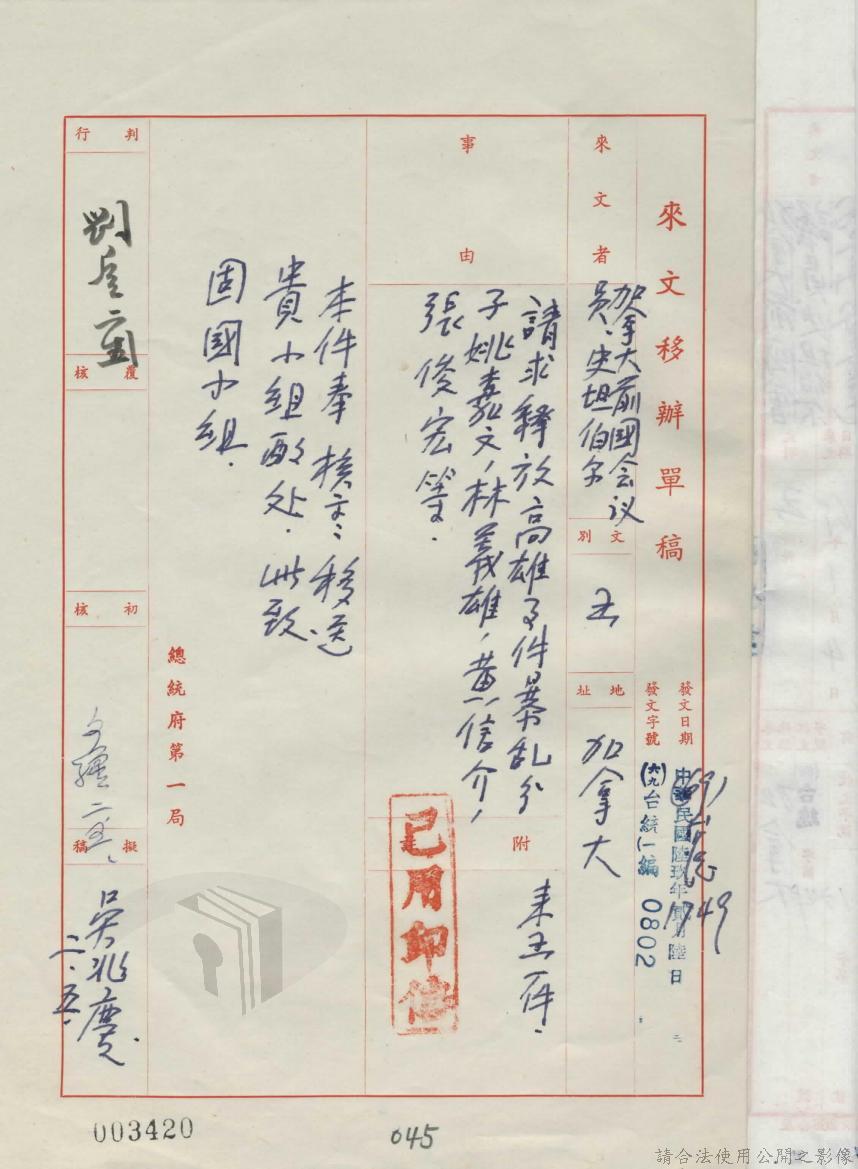 來文移辦單稿
發文日期
中華民國陸玖年貳月陸日
發文字號
(六九)台統(一)編 0802
1749
來文者
加拿大前國会议
員．史坦伯尔
文別
地址
加拿大
事由
請求釋放高雄事件暴乱分
子姚嘉文，林義雄，黃信介，
張俊宏等．
附
来函一件．
已用印信
本件奉 核示：移送
貴小組酌处．此致
固國小組．
總統府第一局
判行
覆核
初核
擬稿
吳兆慶
二．五．
003420
045
請合法使用公開之影像